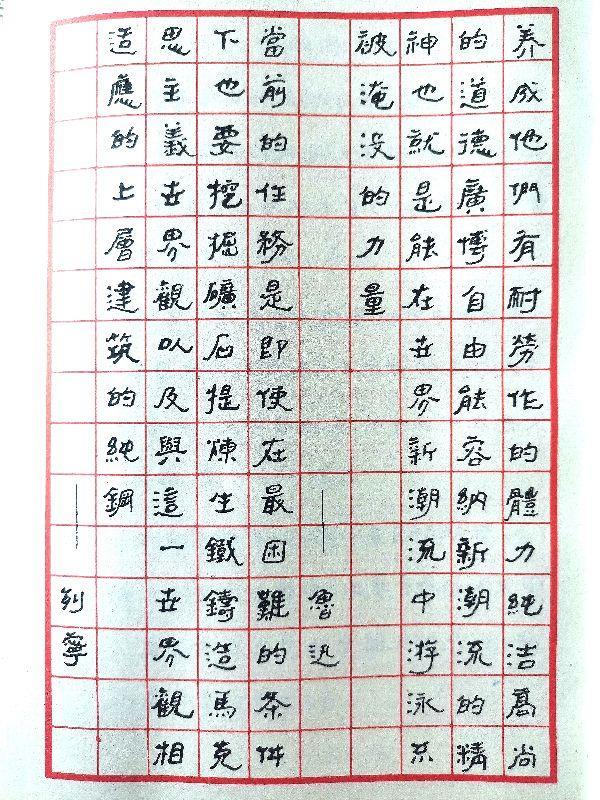 养成他們有耐勞作的體力純洁高尚
的道德廣博自由能容納新潮流的精
神也就是能在世界新潮流中游泳不
被淹没的力量
——魯迅
當前的任務是即使在最困難的条件
下也要挖掘礦石提煉生鐵鑄造馬克
思主義世界觀以及與這一世界觀相
适應的上層建筑的純鋼
——列寧